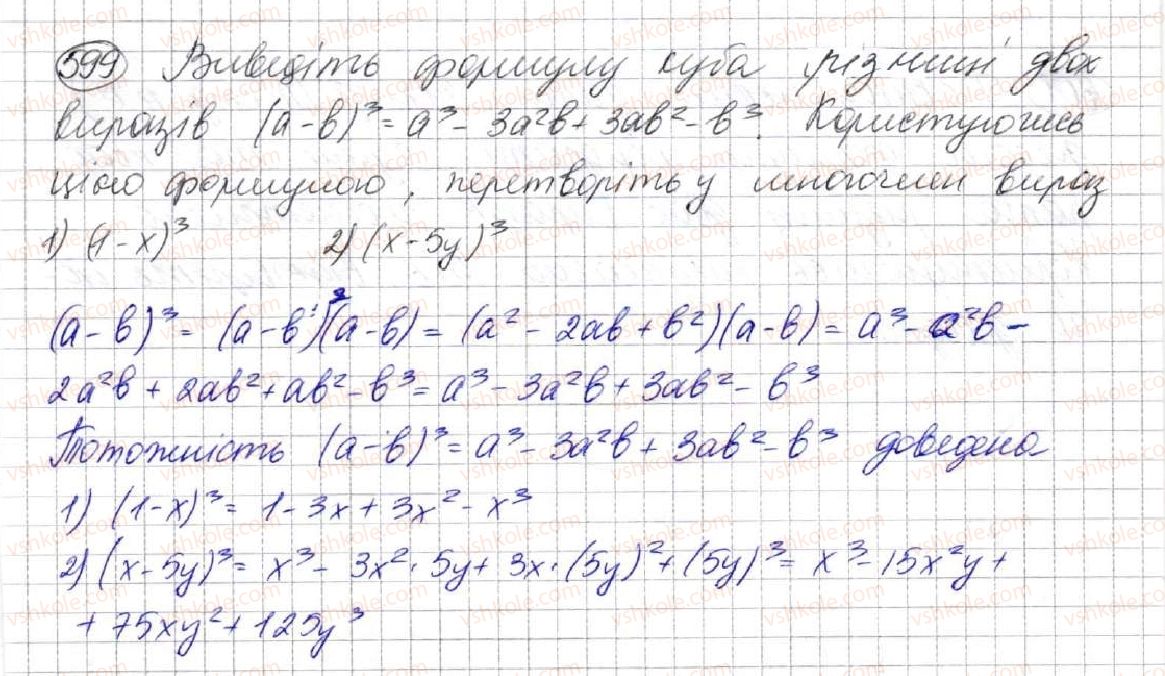 599 Виведіть формулу куба різниці двох
виразів (a-b)³ = a³ - 3a²b + 3ab² - b³. Користуючись
цією формулою, перетворіть у многочлен вираз
1) (1-x)³ 2) (x-5y)³
(a-b)³ = (a-b)²(a-b) = (a² - 2ab + b²)(a-b) = a³ - a²b -
2a²b + 2ab² + ab² - b³ = a³ - 3a²b + 3ab² - b³
Тотожність (a-b)³ = a³ - 3a²b + 3ab² - b³ доведено
1) (1-x)³ = 1 - 3x + 3x² - x³
2) (x-5y)³ = x³ - 3x²·5y + 3x·(5y)² + (5y)³ = x³ - 15x²y +
+ 75xy² + 125y³